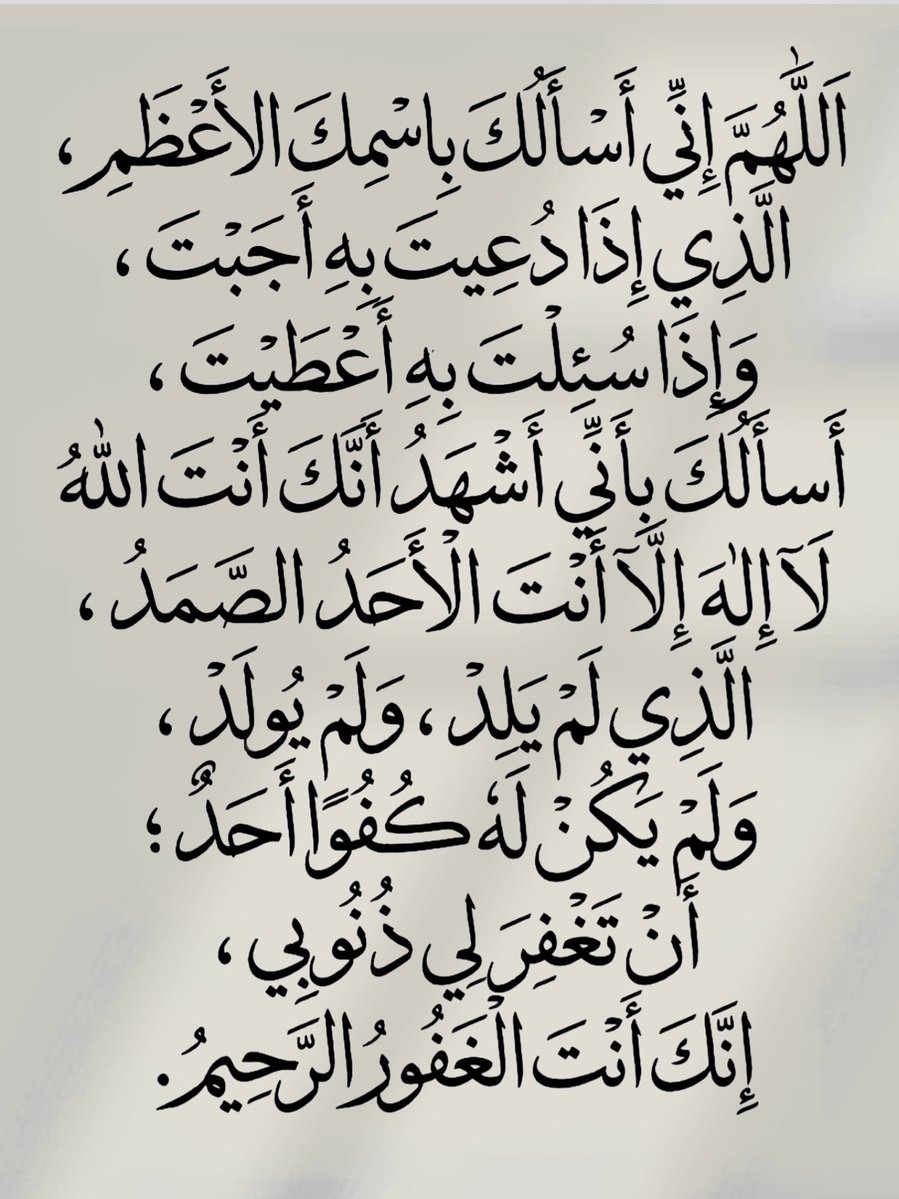 اَللّٰهُمَّ إِنِّي أَسْأَلُكَ بِاسْمِكَ الأَعْظَمِ ،
الَّذِي إِذَا دُعِيتَ بِهِ أَجَبْتَ ،
وَإِذَا سُئِلْتَ بِهِ أَعْطَيْتَ ،
أَسأَلُكَ بِأَنِّي أَشْهَدُ أَنَّكَ أَنْتَ اللّٰهُ
لَآ إِلٰهَ إِلَّآ أَنْتَ الْأَحَدُ الصَّمَدُ ،
الَّذِي لَمْ يَلِدْ ، وَلَمْ يُولَدْ ،
وَلَمْ يَكُنْ لَهٗ كُفُوًا أَحَدٌ ؛
أَنْ تَغْفِرَ لِي ذُنُوبِي ،
إِنَّكَ أَنْتَ الْغَفُورُ الرَّحِيمُ .